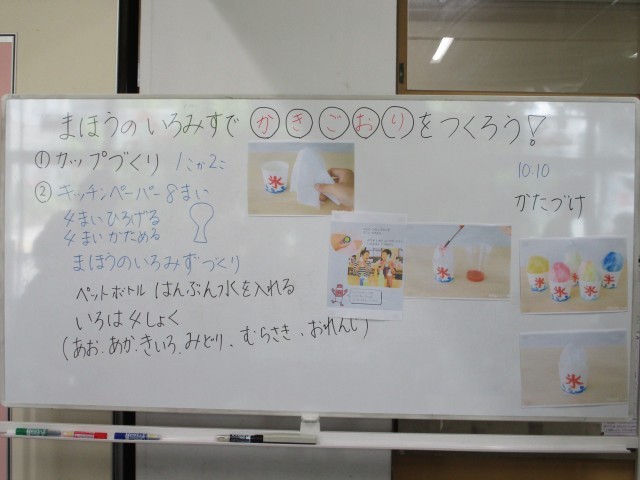 まほうのいろみずで かきごおり をつくろう!
① カップづくり 1こか2こ
② キッチンペーパー8まい
4まい ひろげる
4まい かためる
まほうのいろみずづくり
ペットボトル はんぶん水を入れる
いろは4しょく
(あお、あか、きいろ、みどり、むらさき、おれんじ)
10:10
かたづけ
氷
氷
氷
氷
氷
氷